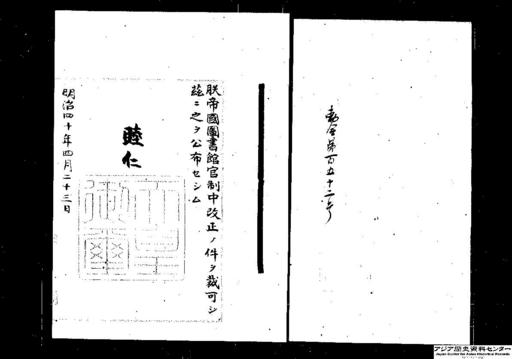 勅令第百五十二号
朕帝國圖書館官制中改正ノ件ヲ裁可シ
茲ニ之ヲ公布セシム
睦仁
明治四十年四月二十三日
アジア歴史資料センター
Japan Center for Asian Historical Records